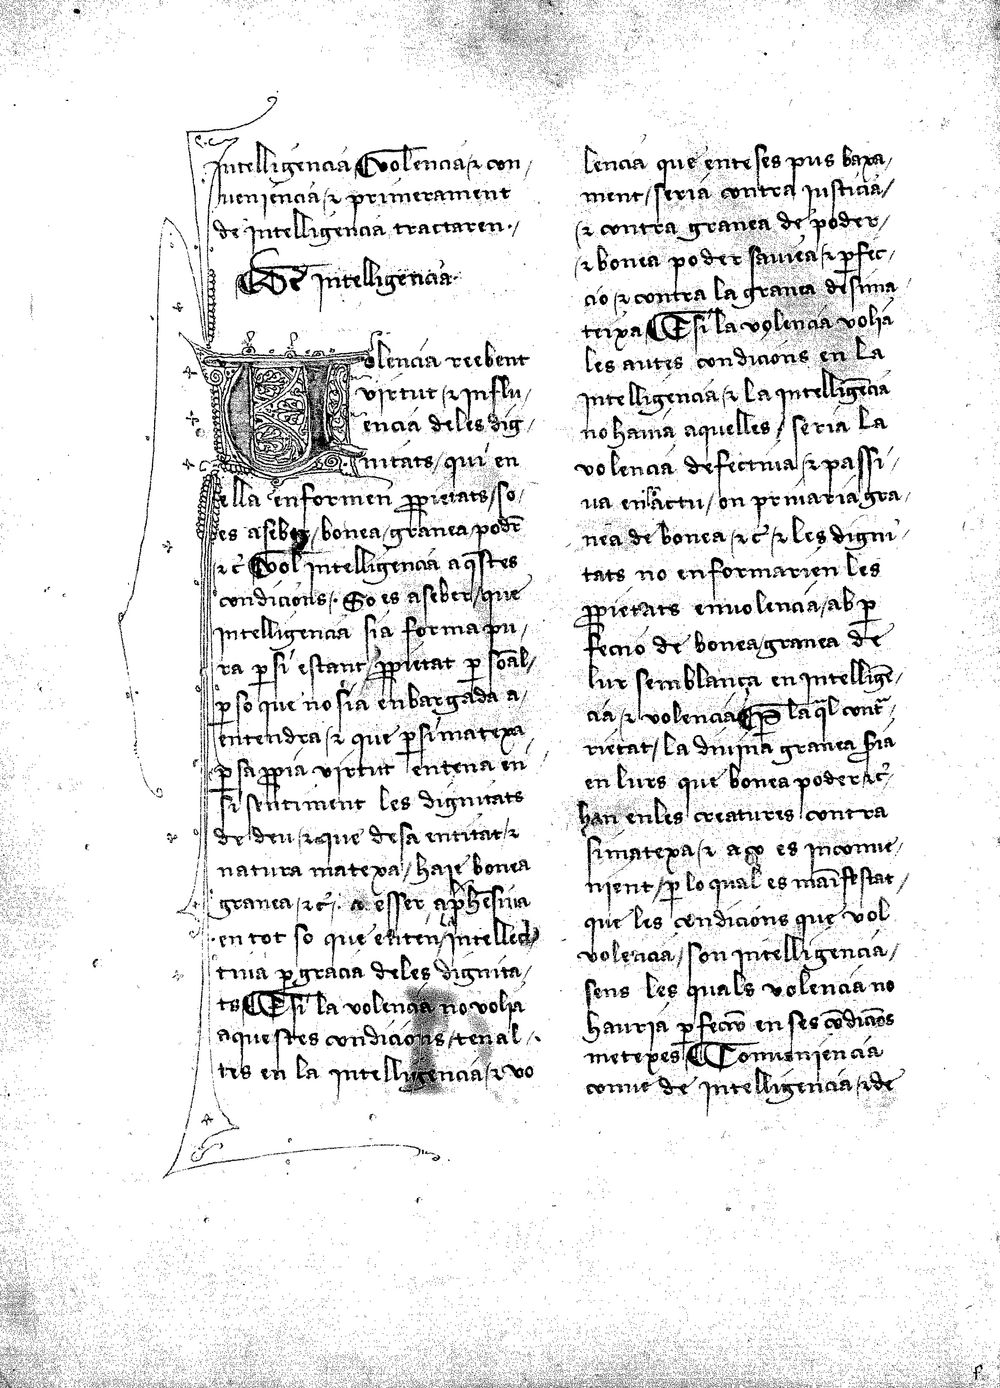 intelligencia / volencia / ⁊ con /
ueniencia / ⁊ primerament
de intelligencia tractaren ·/
De intelligencia ·
Uolencia reebent
virtut / ⁊ influ /
encia de les dig /
nitats / qui en
ella enformen ꝓpietats / so /
es a seber / bonea / granea podr̄
⁊ cͨ vol intelligencia aq̄stes
condicions · So es a seber / que
intelligencia sia forma pu /
ra ꝑ si estant / ꝓpietat ꝑ so al /
ꝑ so que no sia enbargada a /
entendra / ⁊ que ꝑ si matexa
ꝑ sa ꝓpia virtut entena en
si sentiment les dignitats
de deu / ⁊ que de sa entitat / ⁊
natura matexa / haie bonea
granea / ⁊ cͨ · a esser
en tot so que enten / intellec /
tiua ꝑ gracia de les dignita /
ts E si la volencia no volia
aquestes condicions / tenal ·
tes en la intelligencia / ⁊ vo
lencia que enteses pus baxa /
ment / seria contra iusticia /
⁊ contra granea de poder /
⁊ bonea poder sauiea / ⁊ ꝑfec /
cio ⁊ contra la granea de si ma
teixa E si la volencia volia
les autes condicions en la
intelligencia / ⁊ la intelligēcia
no hauia aquelles / seria la
volencia defectiua / ⁊ passi /
ua en actu / on priuaria gra /
nea de bonea ⁊ cͨ ⁊ les digni /
tats no enformarien les
ꝓpietats en volencia / ab ꝑ
feccio de bonea / granea de
lur semblança en intelligē /
cia / ⁊ volencia Per la q̄l cont̄ /
rietat / la diuina granea s̄ia
en lurs que bonea poder ⁊ cͨ
han en les creatures contra
si matexa / ⁊ aço es inconue /
nient / ꝑ lo qual es māifestat /
que les condicions que vol
volencia / son intelligencia /
sens les quals volencia no
hauria ꝑfeccio en ses cōdiciōs
metexes Conueniencia
coue de intelligencia / ⁊ de